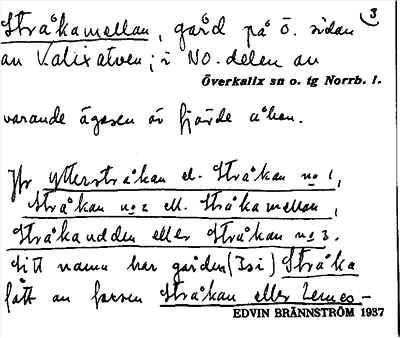 3
Stråkamellan, gård på ö. sidan
av Kalixälven; i NO. delen av
Överkalix sn o. tg Norrb. l.
varande ägaren är fjärde a°ken.
Jfr Ytterstråkan el. Stråkan no 1,
Stråkan no 2 ell. Stråkamellan,
Stråkaudden eller Stråkan no 3.
Sitt namn har gården (Isi) Stråka
fått av forsen Stråkan eller Lemes-
EDVIN BRÄNNSTRÖM 1937